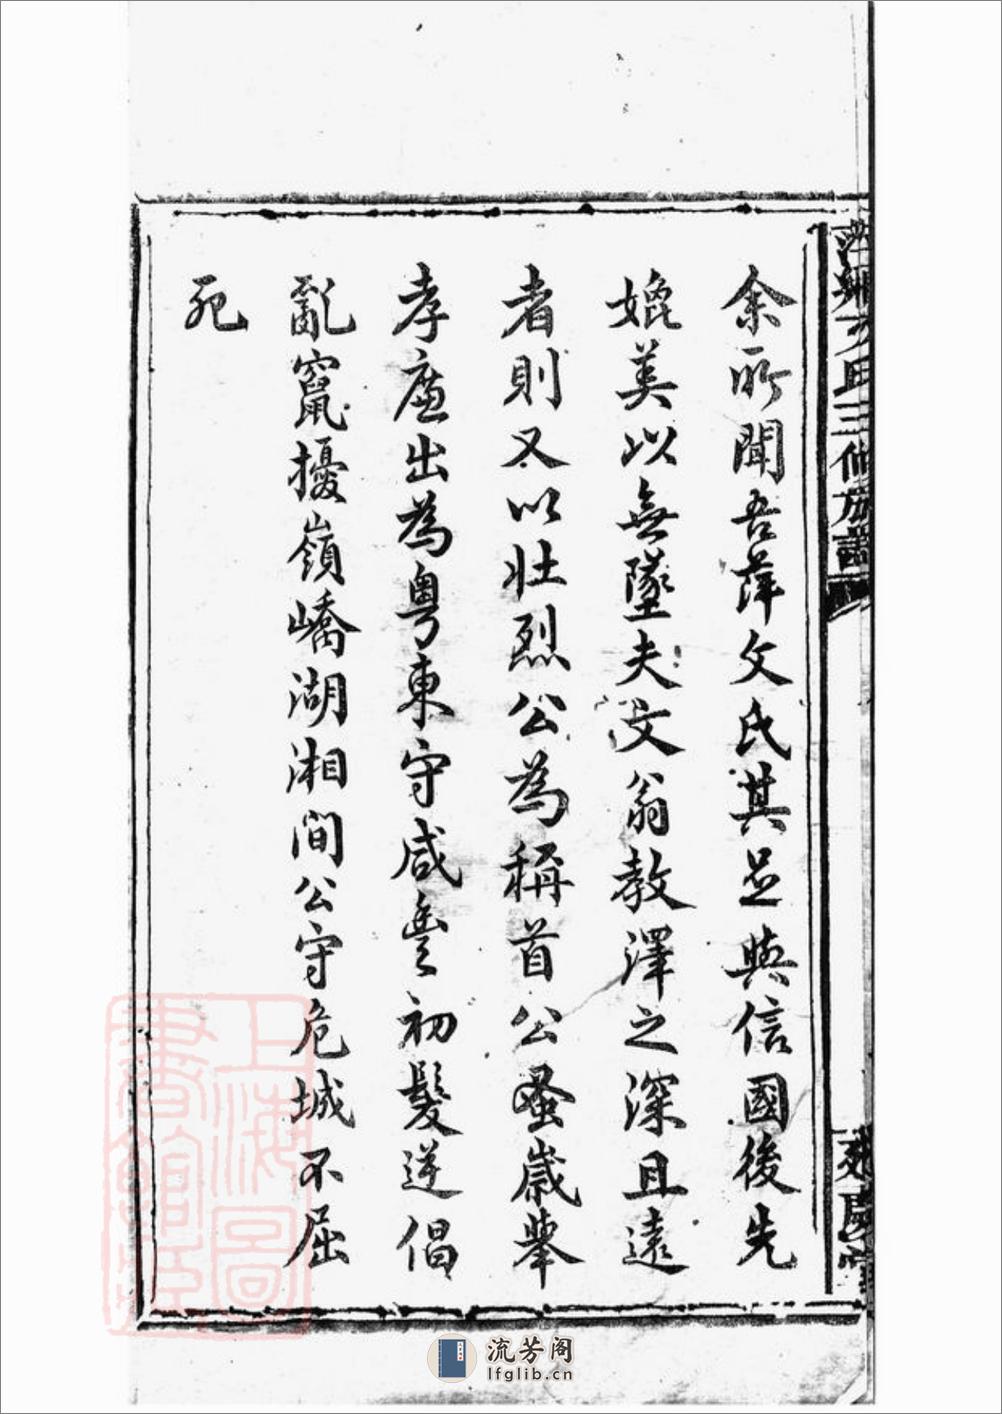 余所聞吾萍文氏其足與信國後先
媲美以無墜夫文翁教澤之深且遠
者則又以壯烈公為稱首公蚤歲舉
孝廉出為粵東守咸豐初髮逆倡
亂竄擾嶺嶠湖湘間公守危城不屈
死
文氏三修族譜
上海圖書館藏
流芳阁
lfglib.cn